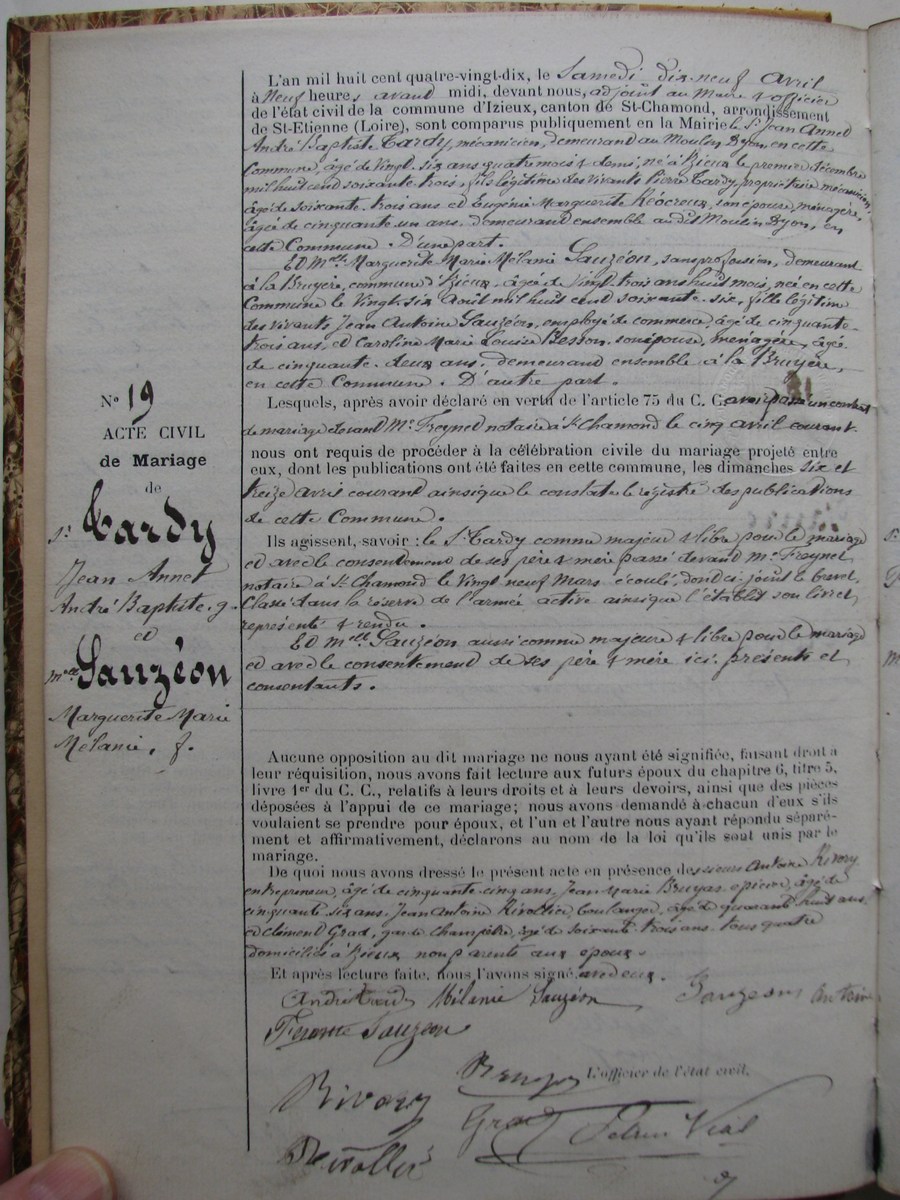 L'an mil huit cent quatre-vingt-dix, le Samedi dix-neuf Avril
à Neuf heures avant midi, devant nous, adjoint au Maire & officier
de l'état civil de la commune d'Izieux, canton de St-Chamond, arrondissement
de St-Etienne (Loire), sont comparus publiquement en la Mairie le Sr Jean Annet
André Baptiste Tardy, mécanicien, demeurant au Moulin Dyon, en cette
Commune, âgé de Vingt-six ans quatre mois & demi, né à Izieux le premier Décembre
mil huit cent soixante-trois, fils légitime des vivants Pierre Tardy, propriétaire mécanicien,
âgé de soixante-trois ans et Eugénie Marguerite Réocreux, son épouse, ménagère,
âgée de cinquante-un ans, demeurant ensemble au dit Moulin Dyon, en
cette Commune. D'une part.
Et Melle Marguerite Marie Mélanie Sauzéon, sans profession, demeurant
à la Bruyère, commune d'Izieux, âgée de Vingt-trois ans huit mois, née en cette
Commune le Vingt-six Août mil huit cent soixante-six, fille légitime
des vivants, Jean Antoine Sauzéon, employé de commerce, âgé de cinquante-
trois ans, et Caroline Marie Louise Besson, son épouse, ménagère, âgée
de cinquante-deux ans, demeurant ensemble à la Bruyère,
en cette Commune. D'autre part.
Lesquels, après avoir déclaré en vertu de l'article 75 du C. C. avoir passé un contrat
de mariage devant Me Freynet notaire à St Chamond le cinq avril courant.
nous ont requis de procéder à la célébration civile du mariage projeté entre
eux, dont les publications ont été faites en cette commune, les dimanches six et
treize avril courant ainsi que le constate le registre des publications
de cette Commune.
Ils agissent, savoir : le Sr Tardy comme majeur & libre pour le mariage
et avec le consentement de ses père & mère passé devant Me Freynet
notaire à St Chamond le Vingt neuf Mars écoulé, dont ci-joint le brevet,
Classé dans la réserve de l'armée active ainsi que l'établit son livret
représenté & rendu.
Et Melle Sauzéon aussi comme majeure & libre pour le mariage
et avec le consentement de ses père & mère ici présents et
consentants.
No 19
ACTE CIVIL
de Mariage
de
Sr Tardy
Jean Annet
André Baptiste, g.
et
Melle Sauzéon
Marguerite Marie
Mélanie, f.
Aucune opposition au dit mariage ne nous ayant été signifiée, faisant droit à
leur réquisition, nous avons fait lecture aux futurs époux du chapitre 6, titre 5,
livre 1er du C. C., relatifs à leurs droits et à leurs devoirs, ainsi que des pièces
déposées à l'appui de ce mariage; nous avons demandé à chacun d'eux s'ils
voulaient se prendre pour époux, et l'un et l'autre nous ayant répondu séparé-
ment et affirmativement, déclarons au nom de la loi qu'ils sont unis par le
mariage.
De quoi nous avons dressé le présent acte en présence des sieurs Antoine Rivory
entrepreneur, âgé de cinquante-cinq ans, Jean Marie Bruyas épicier, âgé de
cinquante six ans, Jean Antoine Rivollier, boulanger, âgé de quarante-huit ans
et Clément Grad, garde Champêtre, âgé de soixante-trois ans, tous quatre
domiciliés à Izieux, non parents aux époux.
Et après lecture faite, nous l'avons signé avec eux.
André Tardy Mélanie Sauzéon Sauzéon Antoine
Femme Sauzéon
L'officier de l'état civil,
Rivory
Grad
Vial
Rivollier